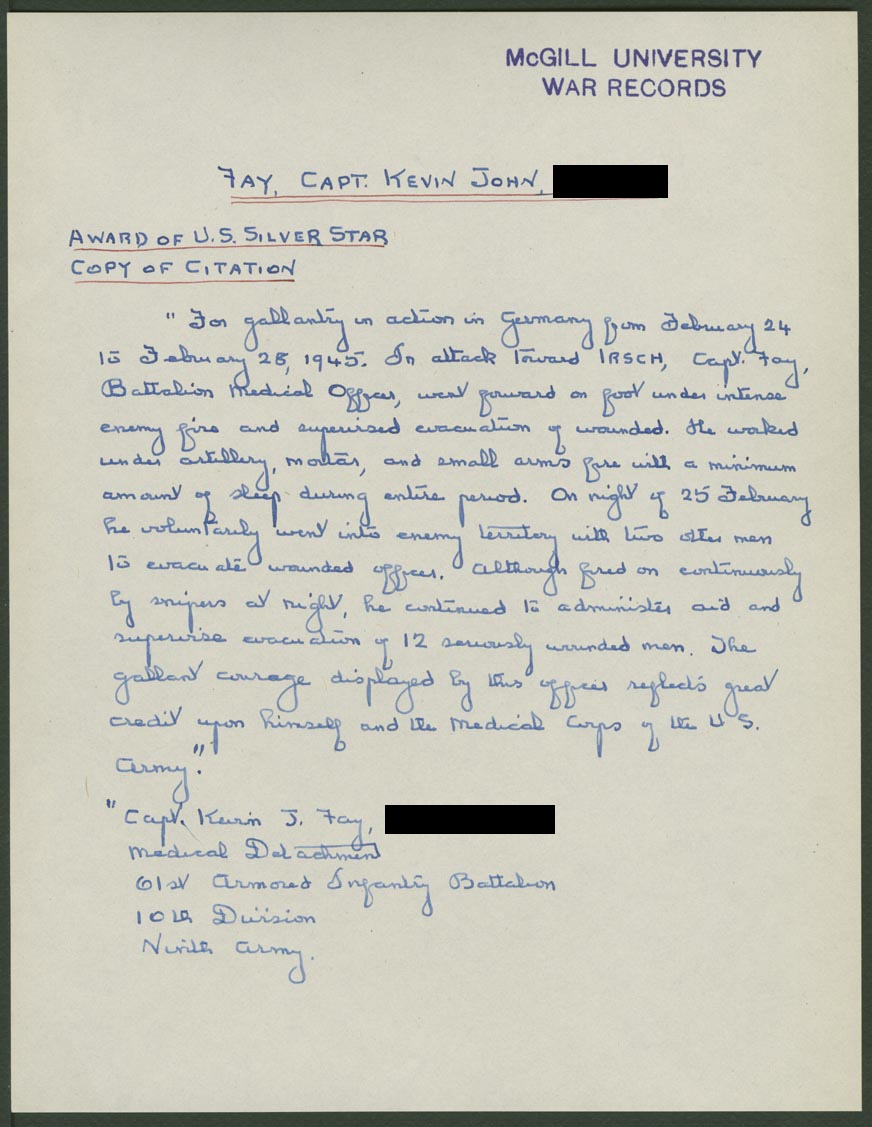 McGILL UNIVERSITY
WAR RECORDS
FAY, CAPT. KEVIN JOHN,
AWARD OF U.S. SILVER STAR
COPY OF CITATION
"For gallantry in action in Germany from February 24
to February 28, 1945. In attack toward IRSCH, Capt. Fay,
Battalion Medical Officer, went forward on foot under intense
enemy fire and supervised evacuation of wounded. He worked
under artillery, mortar, and small arms fire with a minimum
amount of sleep during entire period. On night of 25 February
he voluntarily went into enemy territory with two other men
to evacuate wounded officer. Although fired on continuously
by snipers at night, he continued to administer aid and
supervise evacuation of 12 seriously wounded men. The
gallant courage displayed by this officer reflects great
credit upon himself and the Medical Corps of the U S.
Army."
"Capt. Kevin J. Fay,
Medical Detachment
61st Armored Infantry Battalion
10th Division
Ninth Army.